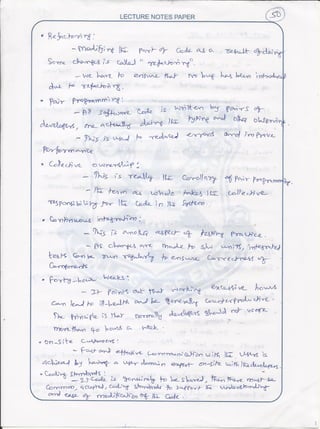 LECTURE NOTES PAPER
50
• Refactoring :
- Modifying the part of Code as a result of doing
Some changes is called " refactoring".
- we have to ensure that no bug has been introduced
due to refactoring.
• Pair programming :
- All software Code is written by pairs of
developers, one actually doing the typing and other observing.
- This is used to reduced errors and improve
performance
• Collective ownership :
- This is really the Corrollary of Pair Programming.
- the team as whole takes the collective
responsibility for the Code in the System.
• Continuous integration :
- This is another aspect of testing practice.
- As changes are made to units, integrated
tests Can be run regularly to ensure Correctness of
Components
• Forty-hour weeks :
- It Points out that working excessive hours
Can lead to ill-health and be generally Counterproductive.
The principle is that normally developers should not work
more than 40 hours a week.
• On-site Customers :
- Fast and effective Communication with the users is
achieved by having a user domain expert on-site with the developers.
• Coding Standards :
- If Code is genuinely to be shared, then there must be
Common, accepted, Coding standards to support the understanding
and ease of modification of the Code.